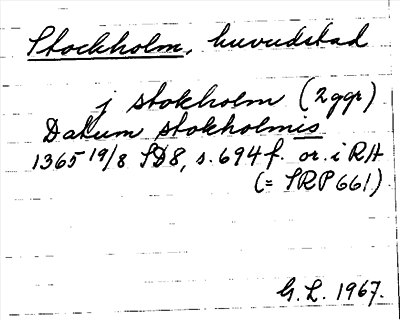 Stockholm, huvudstad
j stokholm (2ggr)
Datum stokholmis
1365 19/8 SD8, s. 694 f. or. i RA
(= SRP 661)
G. L. 1967.